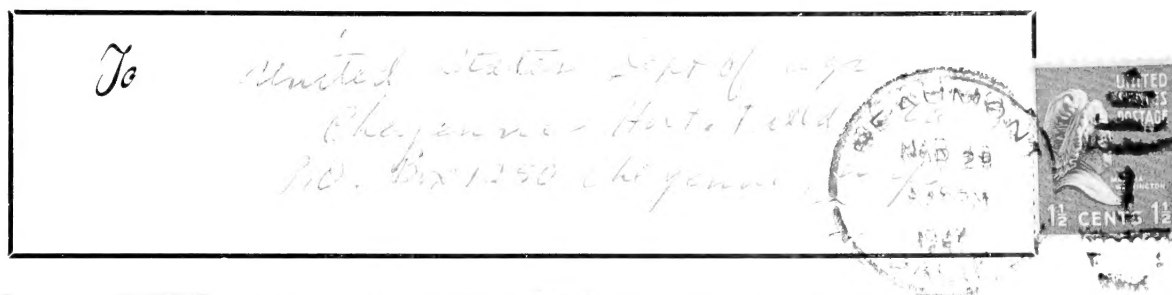 To
United States Dept of Agr
Cheyenne Hort. Field
P.O. Box 1250 Cheyenne
BEAUMONT
MAR 28
PM
UNITED
STATES
POSTAGE
WASHINGTON
1½ CENTS 1½